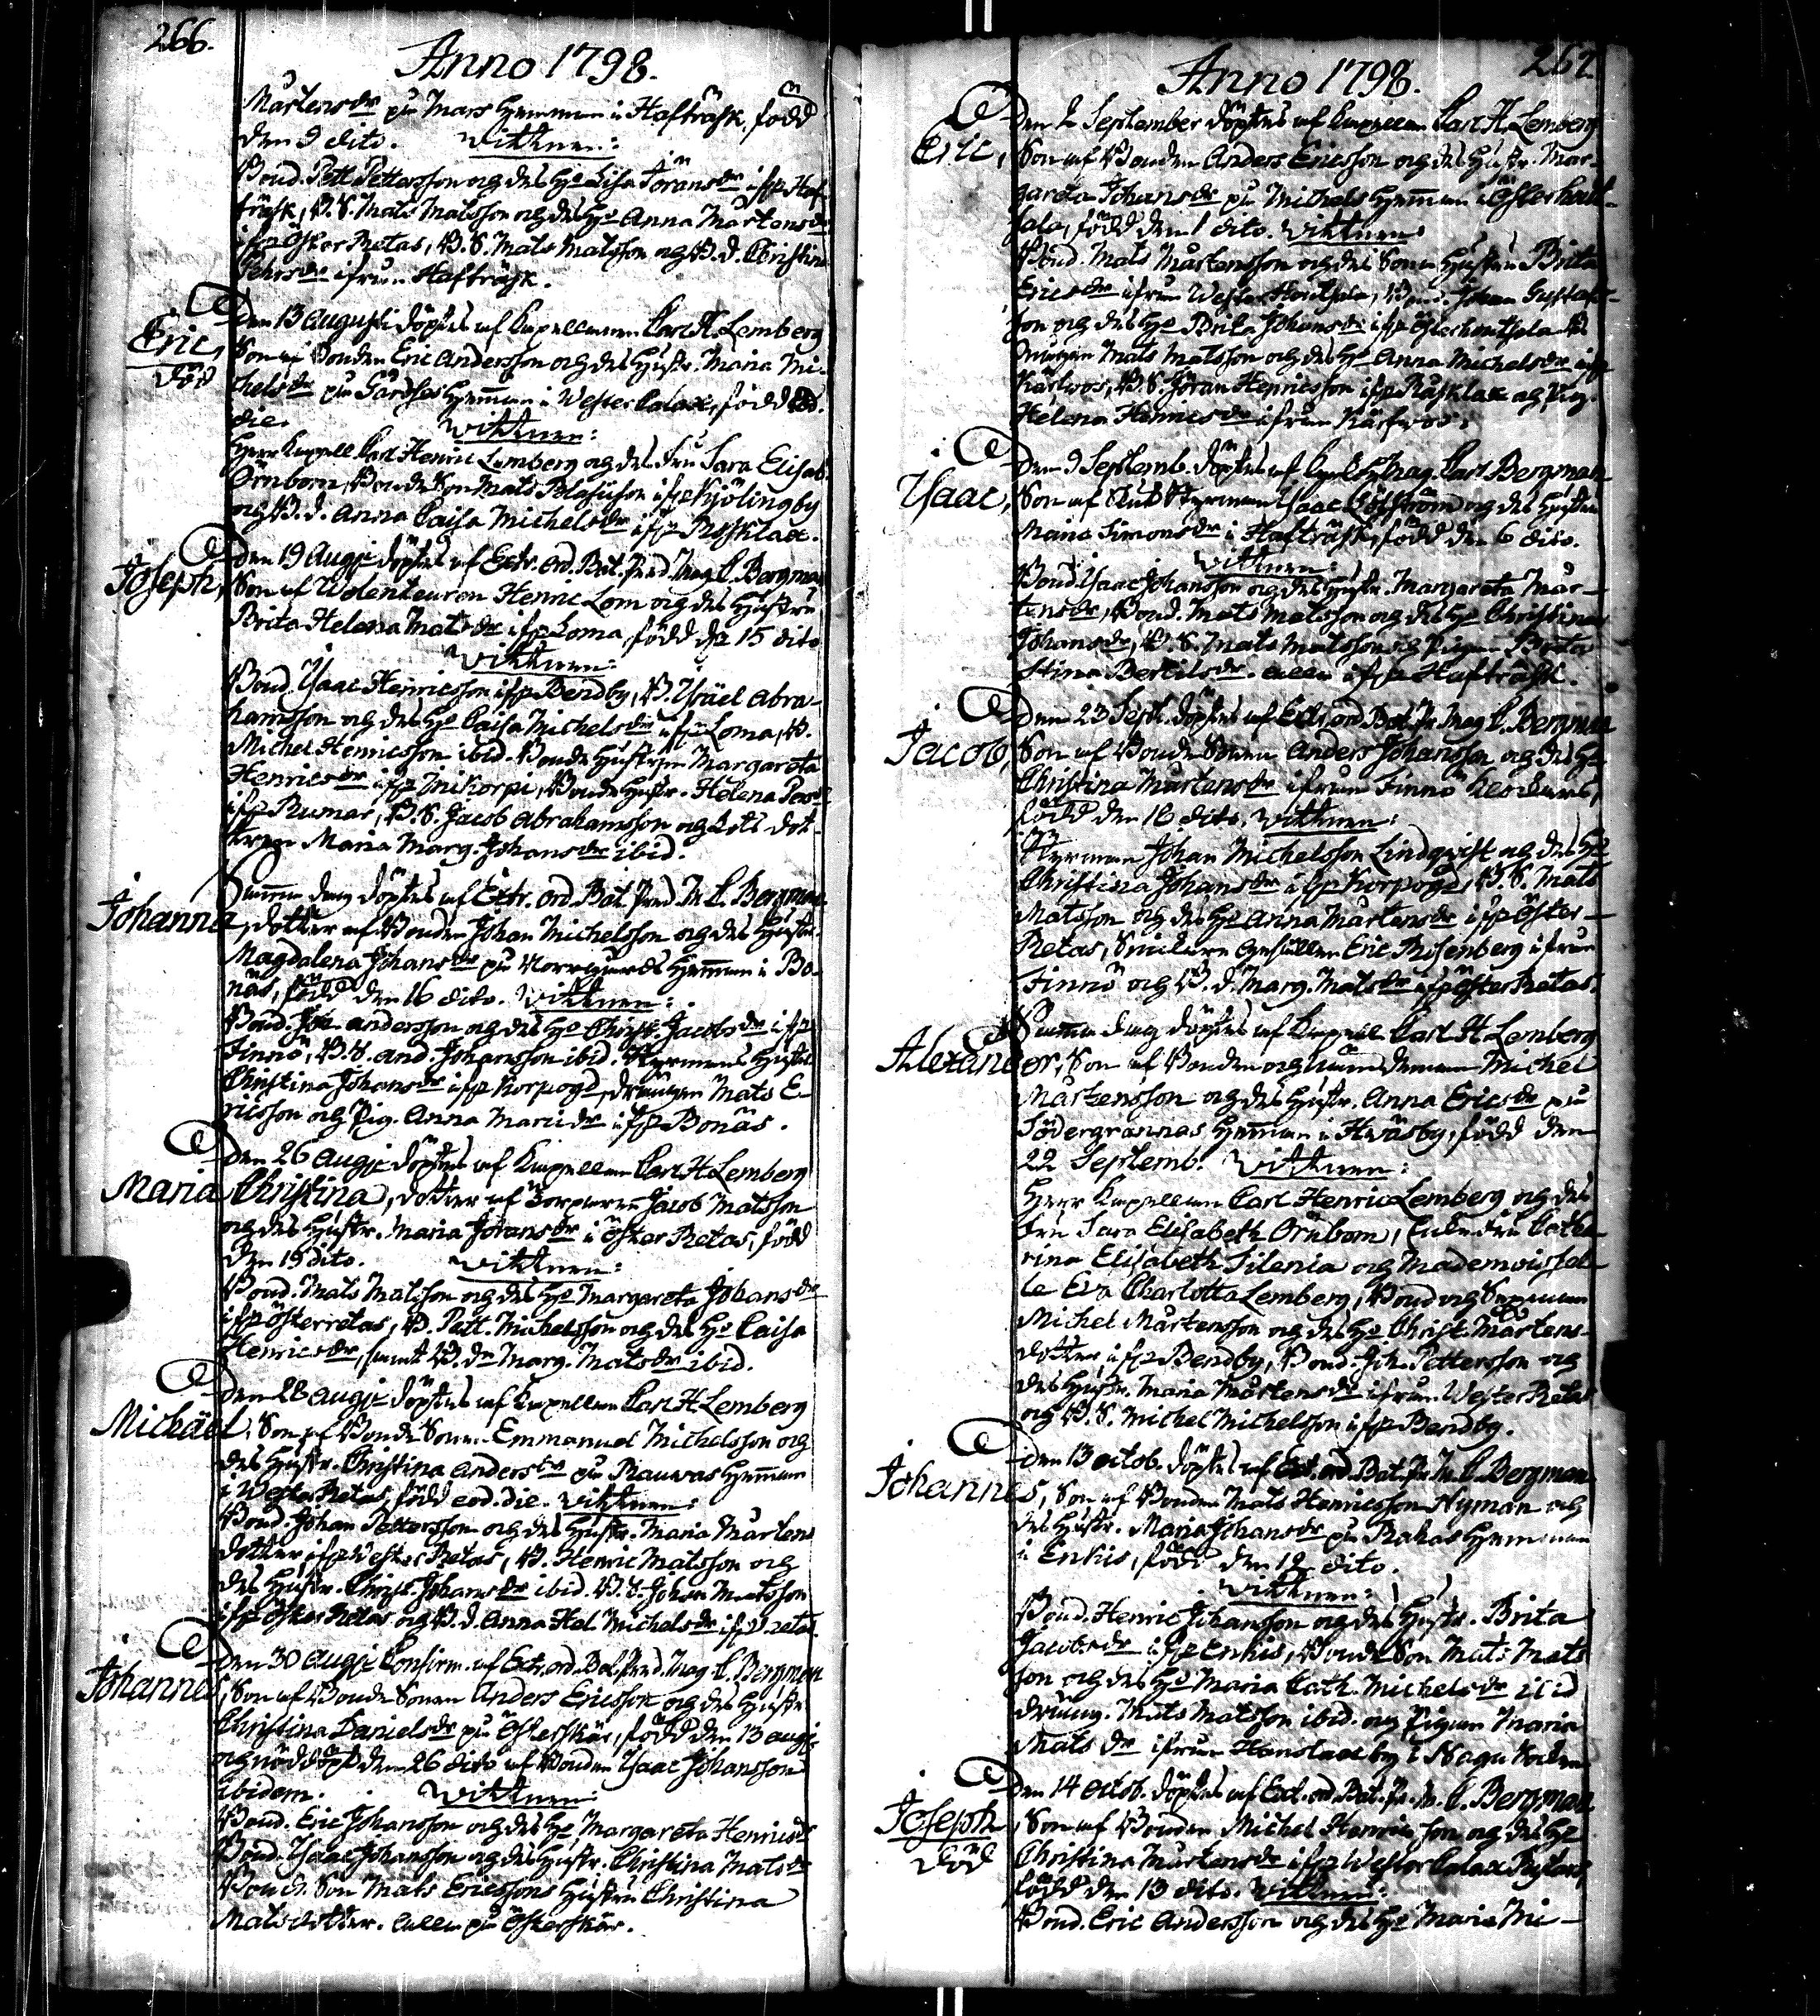 266.
Anno 1798.
Mårtensdr på Mars Hemman i Hafträsk, född
den 9 dito. Vittnen:
Bond. Pett Pettersson och des Ho Lisa Göransdr ifr. Haf-
träsk, B. S. Mats Matsson och des Ho Anna Mårtensdr
ifr Öster Retas, B. S. Mats Matsson och B. d. Christina
Pehrsdr ifrån Hafträsk.
Den 13 Augusti döptes af Capellanen Carl H. Lemberg
Eric,
Son af Bonden Eric Andersson och des Hustr. Maria Mi-
död
chelsdr på Gårdses Hemman i Wester Calax, född eod.
die. Vittnen:
Herr Capell. Carl Henric Lemberg och des Fru Sara Elisab.
Örnbom, Bonde Son Mats Blasiuson ifr Kjölingby
och B. d. Anna Caisa Michelsdr ifr Rysklax.
Den 19 Augi döptes af Extr. ord. Bat. Pred. Mag. C. Bergman
Joseph,
Son af Wolenteuren Henric Lom och des Hustru
Brita Helena Matsdr ifr Loma, född d. 15 dito
Vittnen:
Bond. Isaac Henricsson ifr Bendby, B. Isräel Abra-
hamsson och des Ho Caisa Michelsdr ifr Loma, B.
Michel Henricsson ibid. Bonde Hustrun Margareta
Henricsdr ifr Mikorpi, Bonde Hustr. Helena Persdr
ifr Rumar, B. S. Jacob Abrahamsson och Lots dot-
tren Maria Marg. Johansdr ibid.
Samma dag döptes af Extr. ord. Bat. Pred. M. C. Bergman
Johanna
, dotter af Bonden Johan Michelsson och des Hustru
Magdalena Johansdr på Norrgårds Hemman i Bo-
näs, född den 16 dito. Vittnen:
Bond. Joh. Andersson och des Ho Christ. Jacobsdr ifr
Finnö, B. S. And. Johansson ibid. Styrmans Hustru
Christina Johansdr ifr Korpogd, Drängen Mats E-
ricsson och Pig. Anna Mariædr ifr Bonäs.
Den 26 Augi döptes af Capellan Carl H. Lemberg
Maria Christina, dotter af Torparen Jacob Matsson
och des Hustr. Maria Göransdr i Öster Retas, född
den 19 dito. Vittnen:
Bond. Mats Matsson och des Ho Margareta Johansdr
ifr Österretas, B. Pett. Michelsson och des Ho Caisa
Henricsdr, samt B. dr Marg. Matsdr ibid.
Den 28 Augi döptes af Capellan Carl H. Lemberg
Michäel, Son af Bonde Sonen Emmanuel Michelsson och
des Hustr. Christina Andersdr på Rauwas Hemman
i Wester Retas, född eod. die. Vittnen:
Bond. Johan Pettersson och des Hustr. Maria Mårtens
dotter ifr Wester Retas, B. Henric Matsson och
des Hustr. Christ. Johansdr ibid. B. S. Johan Matsson
ifr Öster Retas och B. d. Anna Hel. Michelsdr ifr W retas.
Den 30 Augi Confirm. af Extr. ord. Bat. Pred. Mag. C. Bergman
Johannes
, Son af Bonde Sonen Anders Ericsson och des Hustr
Christina Danielsdr på Österskär, född den 13 Augi
och nöddöpt den 26 dito af Bonden Isaac Johansson
ibidem. Vittnen:
Bond. Eric Johansson och des Ho Margareta Henricsdr
Bond. Isaac Johansson och des Hustr. Christina Matsdr
Bonde Son Mats Ericssons Hustru Christina
Matsdotter. Alla på Österskär.
267.
Anno 1798.
Den 2 September döptes af Capellan Carl H. Lemberg
Eric,
Son af Bonden Anders Ericsson och des Hustr. Mar-
gareta Johansdr på Michels Hemman i Österhout-
sala, född den 1 dito. Vittnen:
Bond. Mats Mårtensson och des Sona Hustru Brita
Ericsdr ifrån Wester Houtsala, Bond. Johan Gustafs-
son och des Ho Brita Johansdr ifr Österhoutsala
Drängen Mats Matsson och des Ho Anna Michelsdr ifr
Kärlwos, B. S. Göran Henricsson ifr Rusklax och Pig.
Helena Henricsdr ifrån
Den 9 Septemb. döptes af Mag. Carl Bergman
Isaac,
Son af Styrman Isaac och des Hustru
Maria Simonsdr i Hafträsk, född den 6 dito.
Vittnen:
Bond. Isaac Johansson och des Hustr. Margareta Mår-
tensdr, Bond. Mats Matsson och des Ho Christina
Johansdr, B. S. Mats Matsson och Pigan Brita
Stina Bertilsdr. alla ifr Hafträsk.
Den 23 Sept. döptes af Extr. ord. Bat. Pr. Mag. C. Bergman
Jacob,
Son af Bonde Sonen Anders Johansson och des Ho
Christina Mårtensdr ifrån Finnö
född den 18 dito. Vittnen:
Styrman Johan Michelsson Lindqwist och des Ho
Christina Johansdr ifr Korpogd, B. S. Mats
Matsson och des Ho Anna Mårtensdr ifr Öster-
Retas, Smidare Gesällen Eric Risenberg ifrån
Finnö och B. d. Marg. Matsdr ifr Öster Retas.
Samma dag döptes af Capell. Carl H. Lemberg
Alexander, Son af Bonden och Nämndeman Michel
Mårtensson och des Hustr. Anna Ericsdr på
Södergrannas Hemman i Hwäsby, född den
22 Septemb. Vittnen:
Herr Capellan Carl Henric Lemberg och des
Fru Sara Elisabeth Örnbom, Enke Fru Catha-
rina Elisabeth Silenia och Mademoissel-
le Eva Charlotta Lemberg, Bond. och Sexman
Michel Mårtensson och des Ho Christ. Mårtens-
dotter ifr Bendby, Bond. Joh. Pettersson och
des Hustr. Maria Mårtensdr ifrån Wester Retas
och B. S. Michel Michelsson ifr Bendby.
den 13 Octob. döptes af Ext. ord. Bat. Pr. M. C. Bergman
Johannes, Son af Bonden Mats Henricsson Nyman och
des Hustr. Maria Johansdr på Rakas Hemman
i Enkis, född den 12 dito.
Vittnen:
Bond. Henric Johansson och des Hustr. Brita
Jacobsdr ifr Enkis, Bonde Son Mats Mats-
son och des Ho Maria Cath. Michelsdr ibid
Dräng. Mats Matsson ibid. och Pigan Maria
Matsdr ifrån Hanslax by i Nagu Sockn
Den 14 Octob. döptes af Ext. ord. Bat. Pr. M. C. Bergman
Joseph
, Son af Bonden Michel Henricsson och des Ho
död
Christina Mårtensdr ifr Wester Calax
född den 13 dito. Vittnen:
Bond. Eric Andersson och des Ho Maria Mi-